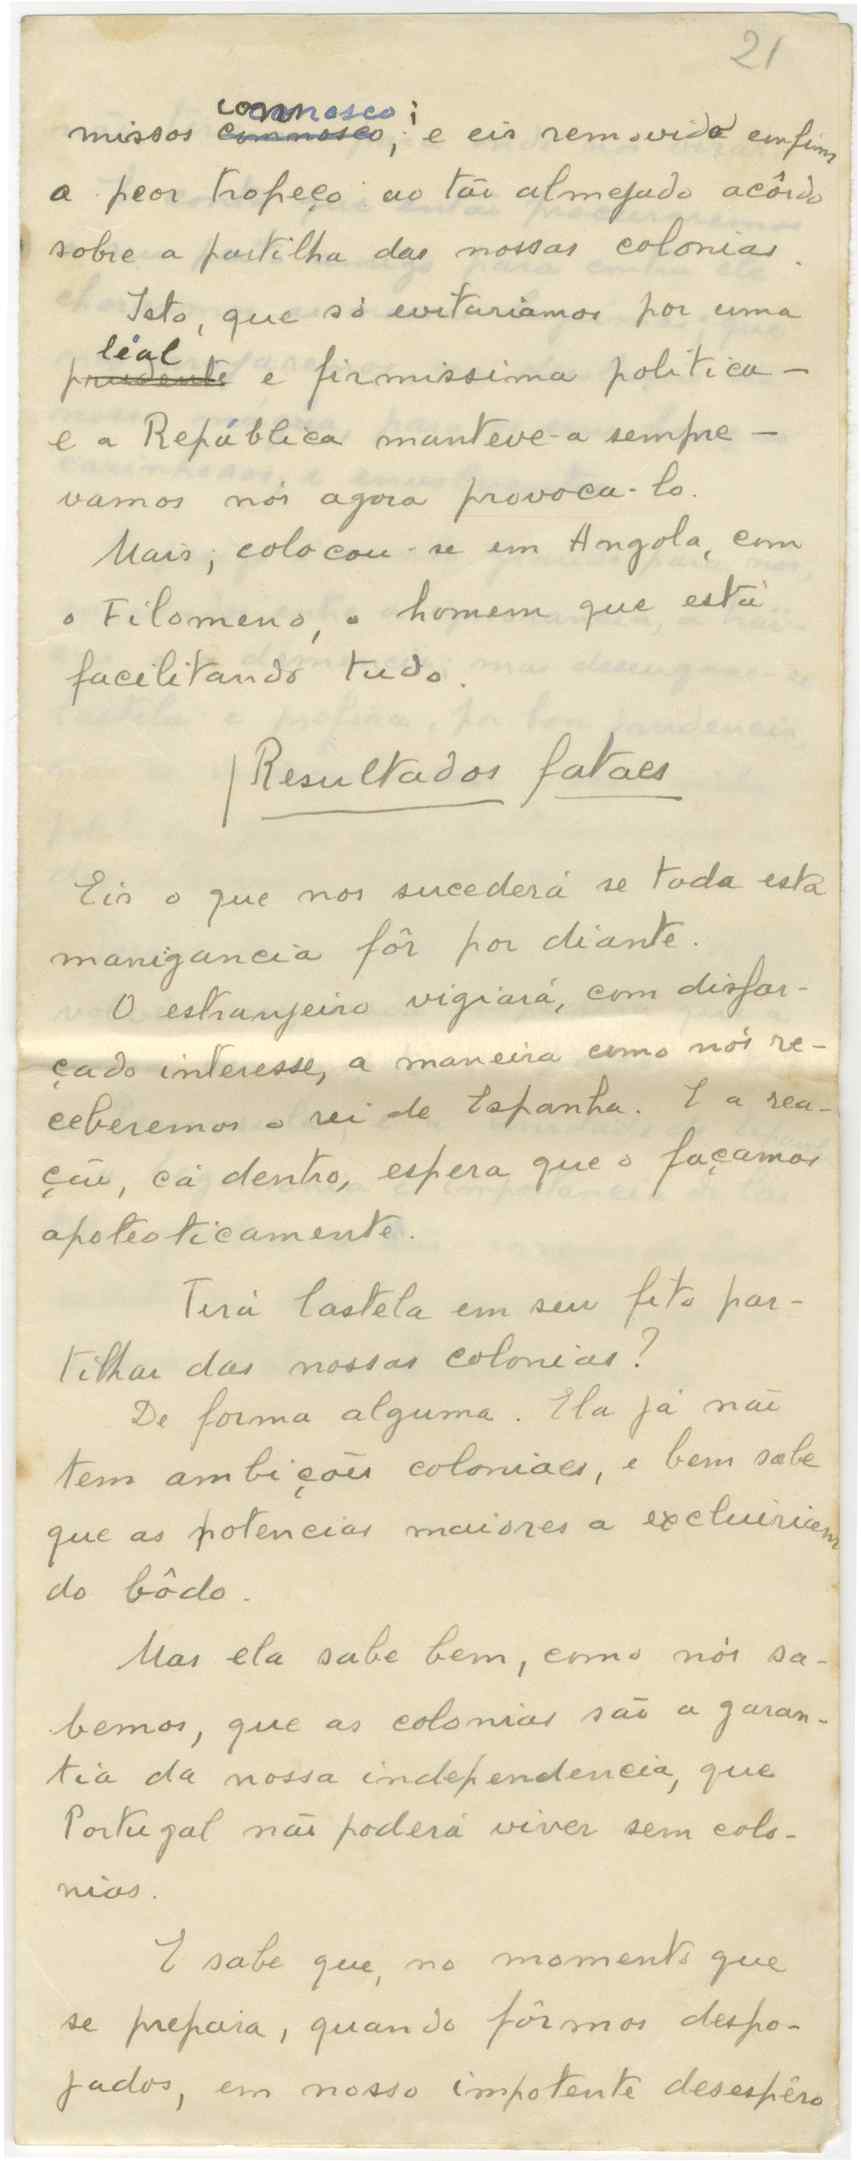 21
connosco;
missos connosco, e eis removido emfim
o peor tropeço ao tão almejado acôrdo
sobre a partilha das nossas colonias.
Isto, que só evitariamos por uma
leal
prudente e firmissima politica —
e a República manteve-a sempre —
vamos nós agora provoca-lo.
Mais; colocou-se em Angola, com
o Filomeno, o homem que está
facilitando tudo.
Resultados fataes
Eis o que nos sucederá se toda esta
manigancia fôr por diante.
O estranjeiro vigiará, com disfar-
çado interesse, a maneira como nós re-
ceberemos o rei de Espanha. E a rea-
ção, cá dentro, espera que o façamos
apoteoticamente.
Terá Castela em seu fito par-
tilhar das nossas colonias?
De forma alguma. Ela já não
tem ambições coloniaes, e bem sabe
que as potencias maiores a excluiriam
do bôdo.
Mas ela sabe bem, como nós sa-
bemos, que as colonias são a garan-
tia da nossa independencia, que
Portugal não poderá viver sem colo-
nias.
E sabe que, no momento que
se prepara, quando fôrmos despo-
jados, em nosso impotente desespêro